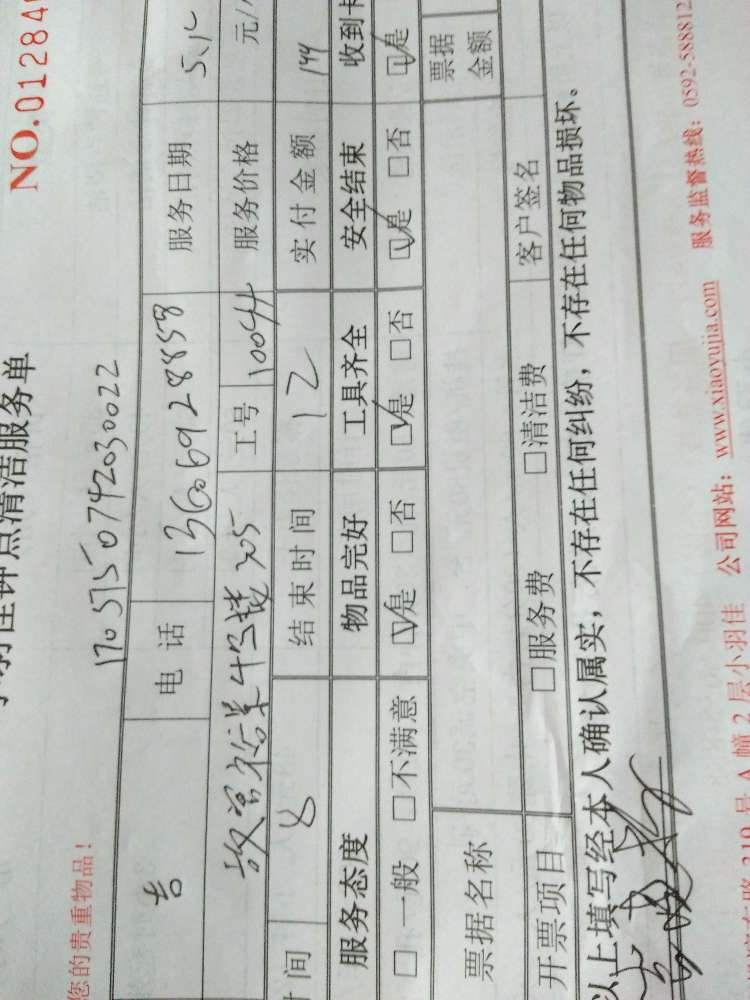 NO.01284
钟点清洁服务单
您的贵重物品！
1705150742030022
电话 13606928858 服务日期 5.12
205 工号 10044 服务价格 元/
时间 8 结束时间 12 实付金额 144
服务态度 物品完好 工具齐全 安全结束 收到卡
□一般 □不满意 ☑是 □否 ☑是 □否 ☑是 □否 ☑是
票据名称 票据金额
开票项目 □服务费 □清洁费 客户签名
以上填写经本人确认属实，不存在任何纠纷，不存在任何物品损坏。
319 号 A 幢 2 层小羽佳 公司网站：www.xiaoyujia.com 服务监督热线：0592-588812